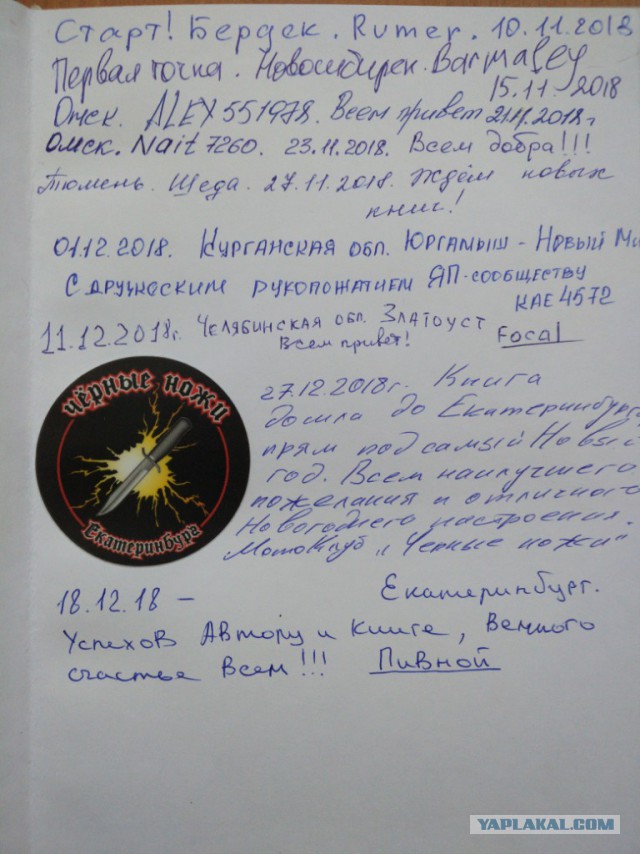 Старт! Бердск. Rumer. 10.11.2018
Первая точка. Новосибирск. Barmaley
15.11.2018
Омск. ALEX551978. Всем привет 21.11.2018г
Омск. Nait7260. 23.11.2018. Всем добра!!!
Тюмень. Щеда. 27.11.2018. Ждём новых
книг!
01.12.2018. Курганская обл. Юргамыш - Новый Ми
С дружеским рукопожатием ЯП-сообществу
КАЕ4572
11.12.2018г. Челябинская обл. Златоуст
Всем привет! Focal
чёрные ножи
Екатеринбург
27.12.2018г. Книга
дошла до Екатеринбурга
прям под самый Новый
год. Всем наилучшего
пожелания и отличного
Новогоднего настроения.
МотоКлуб "Черные ножи"
Екатеринбург.
18.12.18 –
Успехов Автору и книге, Вечного
счастье Всем!!! Пивной
YAPLAKAL.COM